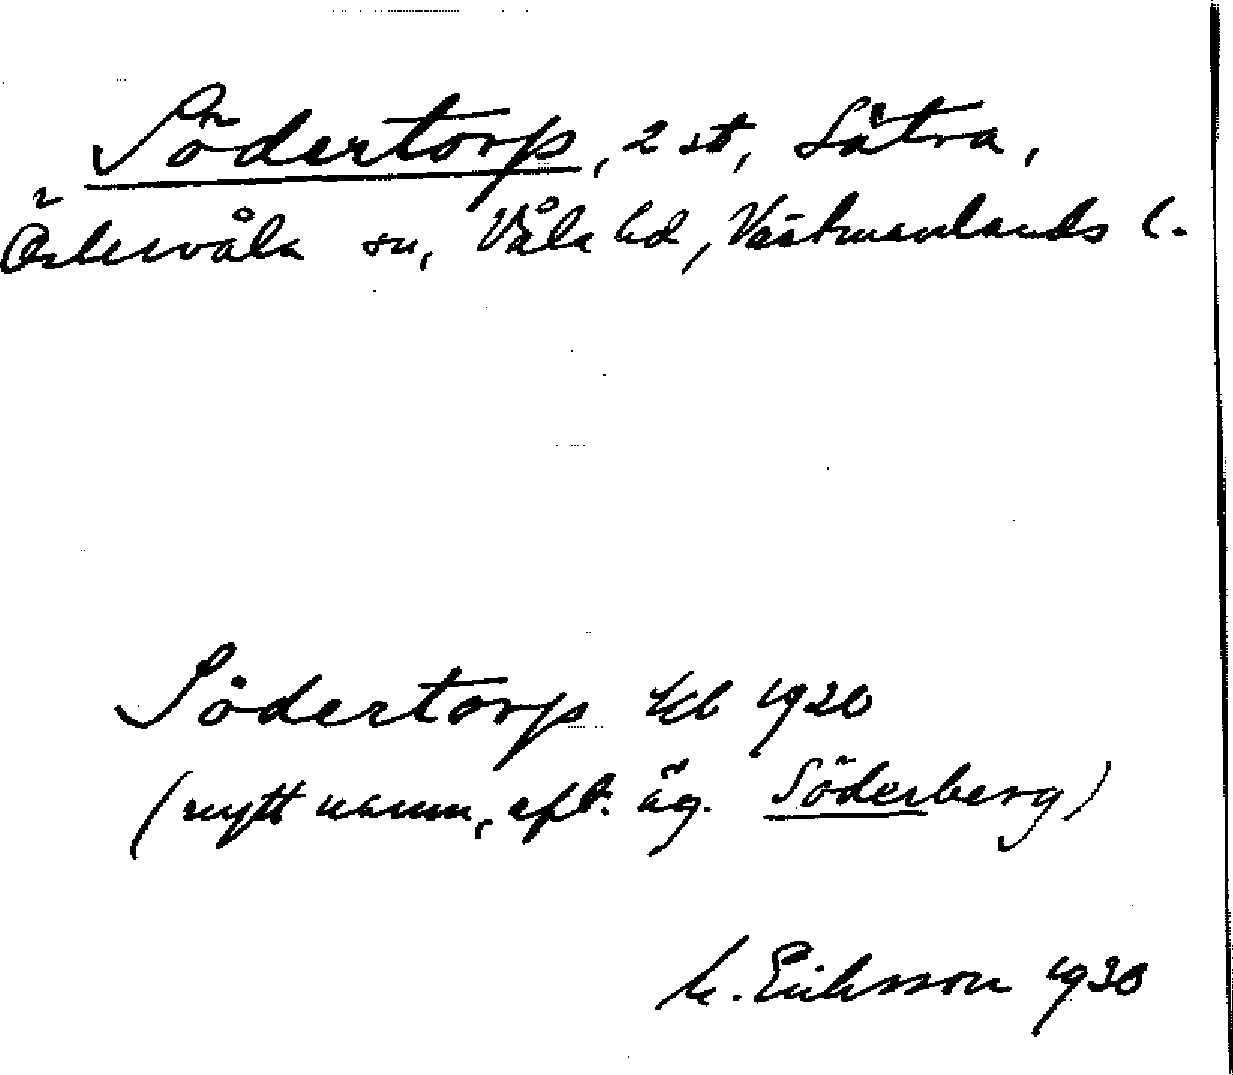 Södertorp, 2 st, Sätra,
Östervåla sn, Våla hd, Västmanlands l.
Södertorp Ekbl 1920
(nytt namn, eft. äg. Söderberg)
M. Eriksson 1930